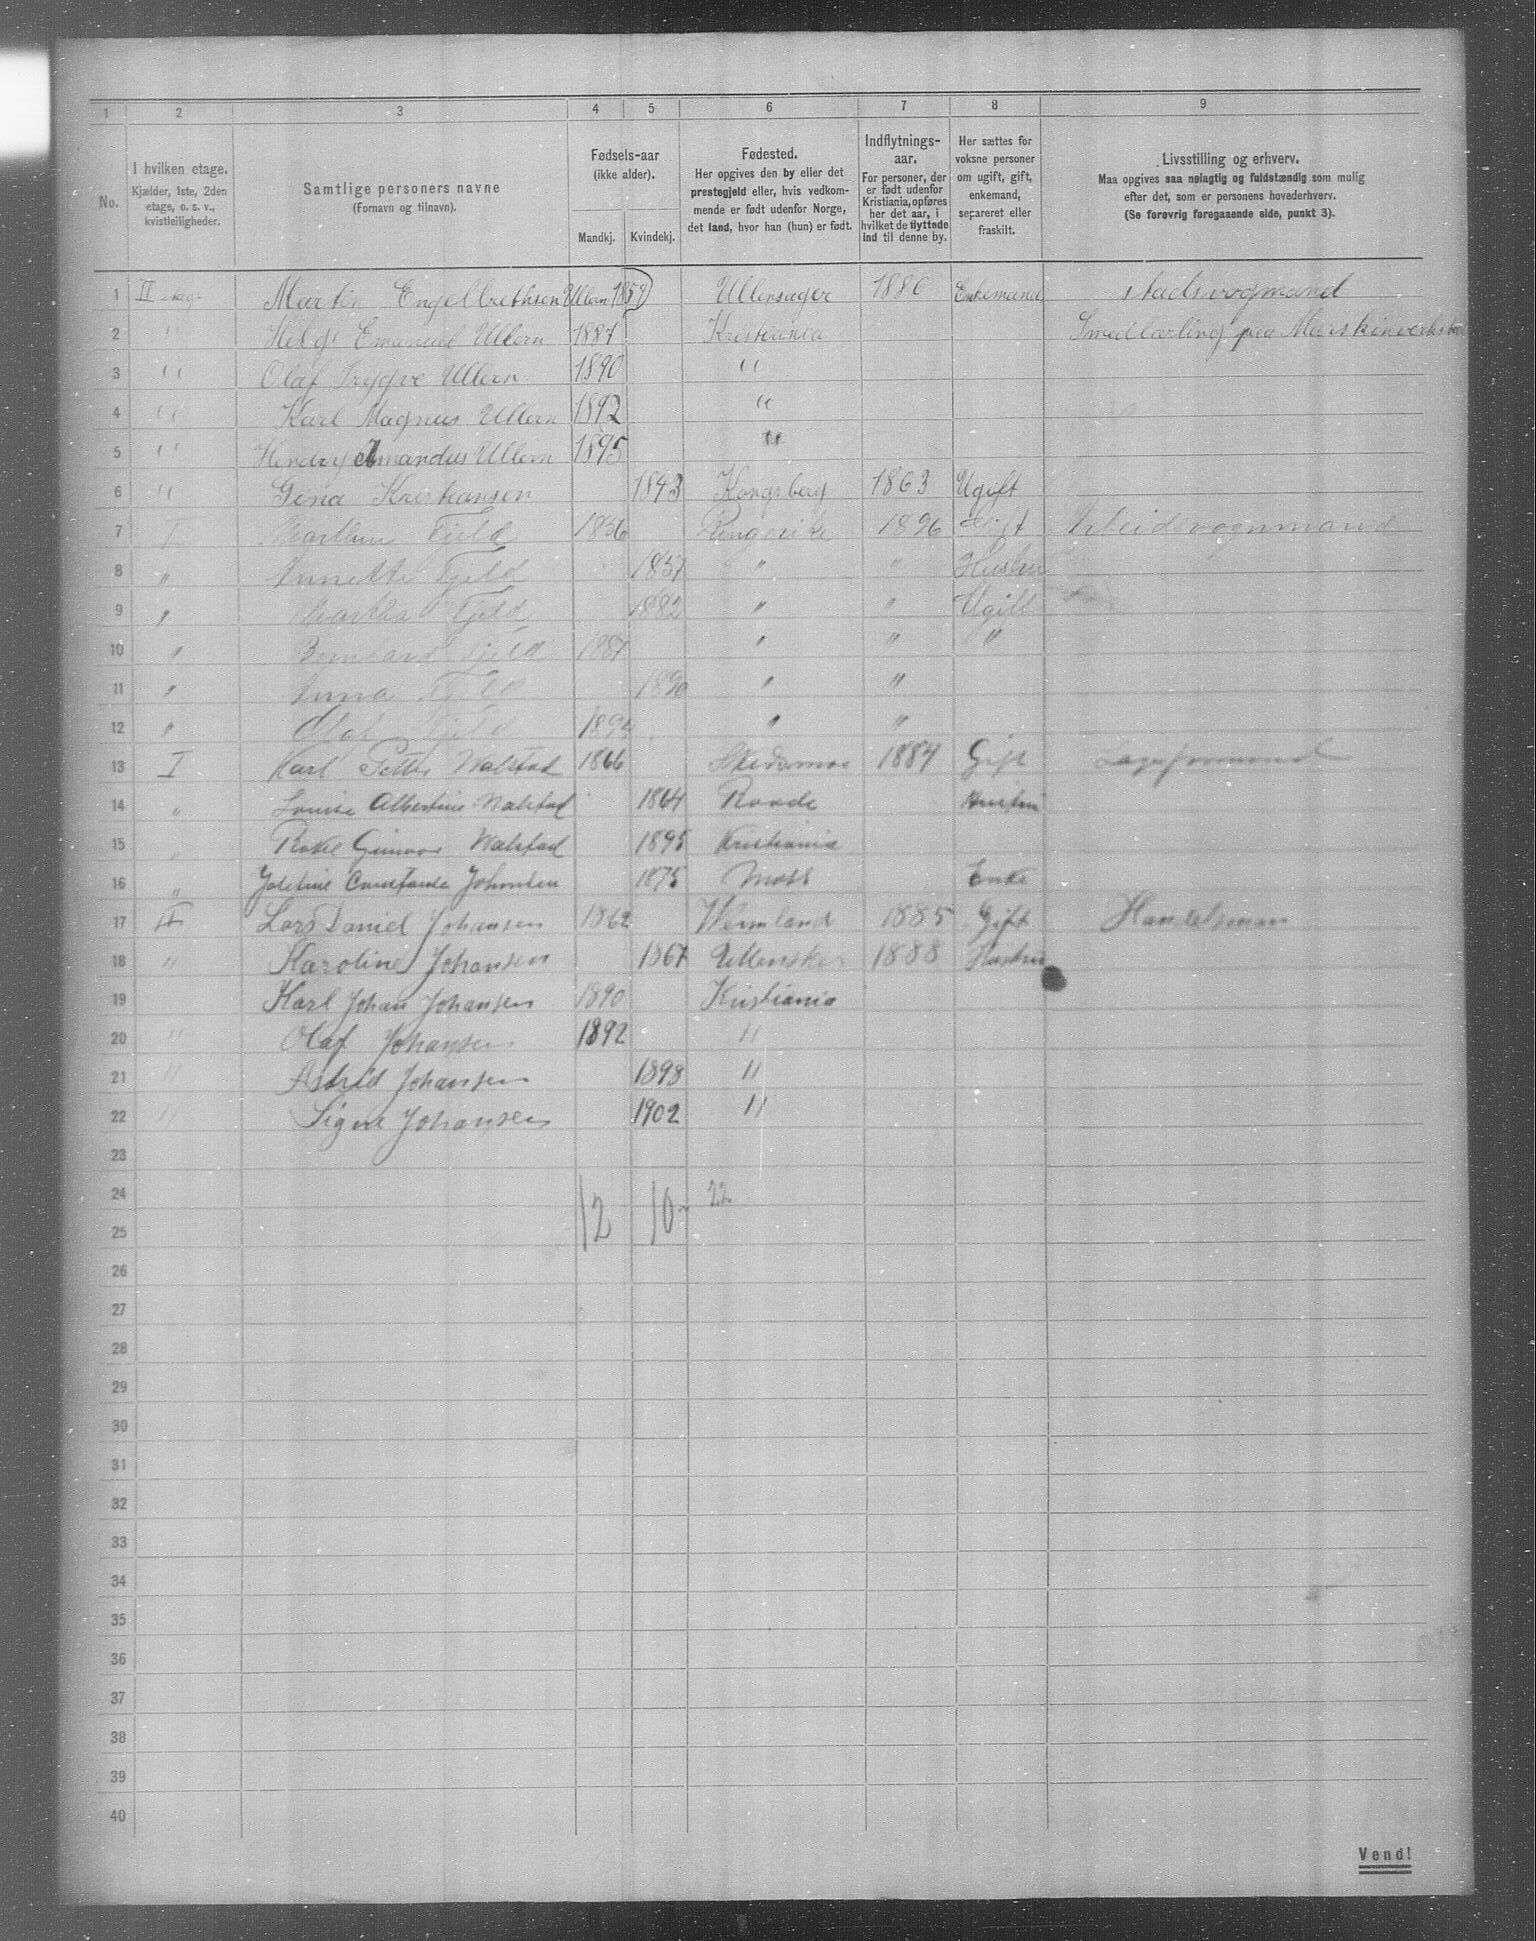 1 2 3 4 5 6 7 8 9
No.
I hvilken etage.
Kjælder, 1ste, 2den
etage, o. s. v.,
kvistleiligheder.
Samtlige personers navne
(Fornavn og tilnavn).
Fødsels-aar
(ikke alder).
Mandkj. Kvindekj.
Fødested.
Her opgives den by eller det
prestegjeld eller, hvis vedkom-
mende er født udenfor Norge,
det land, hvor han (hun) er født.
Indflytnings-
aar.
For personer, der
er født udenfor
Kristiania, opføres
her det aar, i
hvilket de flyttede
ind til denne by.
Her sættes for
voksne personer
om ugift, gift,
enkemand,
separeret eller
fraskilt.
Livsstilling og erhverv.
Maa opgives saa nøiagtig og fuldstændig som mulig
efter det, som er personens hovederhverv.
(Se forøvrig foregaaende side, punkt 3).
1 etage Martin Engelbrethsen Ullern 1859 Ullensager 1880 Enkemand stadsvogmand
2 " Helge Emanuel Ullern 1887 Kristiania Smedlærling paa
3 " Olaf Trygve Ullern 1890 "
4 " Karl Magnus Ullern 1892 "
5 " Hendry Amandus Ullern 1895 "
6 " Gina Kristiansen 1843 Kongsberg 1863 Ugift
7 I Fjeld 1856 Ringerike 1896 Gift Arbeidsvognmand
8 " Annette Fjeld 1857 " " Hustru
9 " Martha Fjeld 1882 " " Ugift
10 " Bernhard Fjeld 1887 " " "
11 " Anna Fjeld 1890 " "
12 " Olaf Fjeld " "
13 I Karl Petter Walstad 1866 Skedsmo 1884 Gift
14 " Louise Albertine Walstad 1864 Raade Hustru
15 " Gunvor Walstad 1895 Kristiania
16 " Josefine Constance Johnsen 1875 Moss Enke
17 II Lars Daniel Johansen 1862 Wermland 1885 Gift Handelsman
18 " Karoline Johansen 1867 1888 Hustru
19 Karl Johan Johansen 1890 Kristiania
20 " Olaf Johansen 1892 "
21 " Astrid Johansen 1898 "
22 " Signe Johansen 1902 "
23
24 22
25 12 10
26
27
28
29
30
31
32
33
34
35
36
37
38
39
40
Vend!